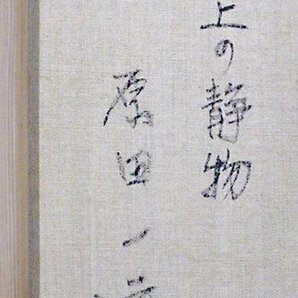 上の静物
原田一